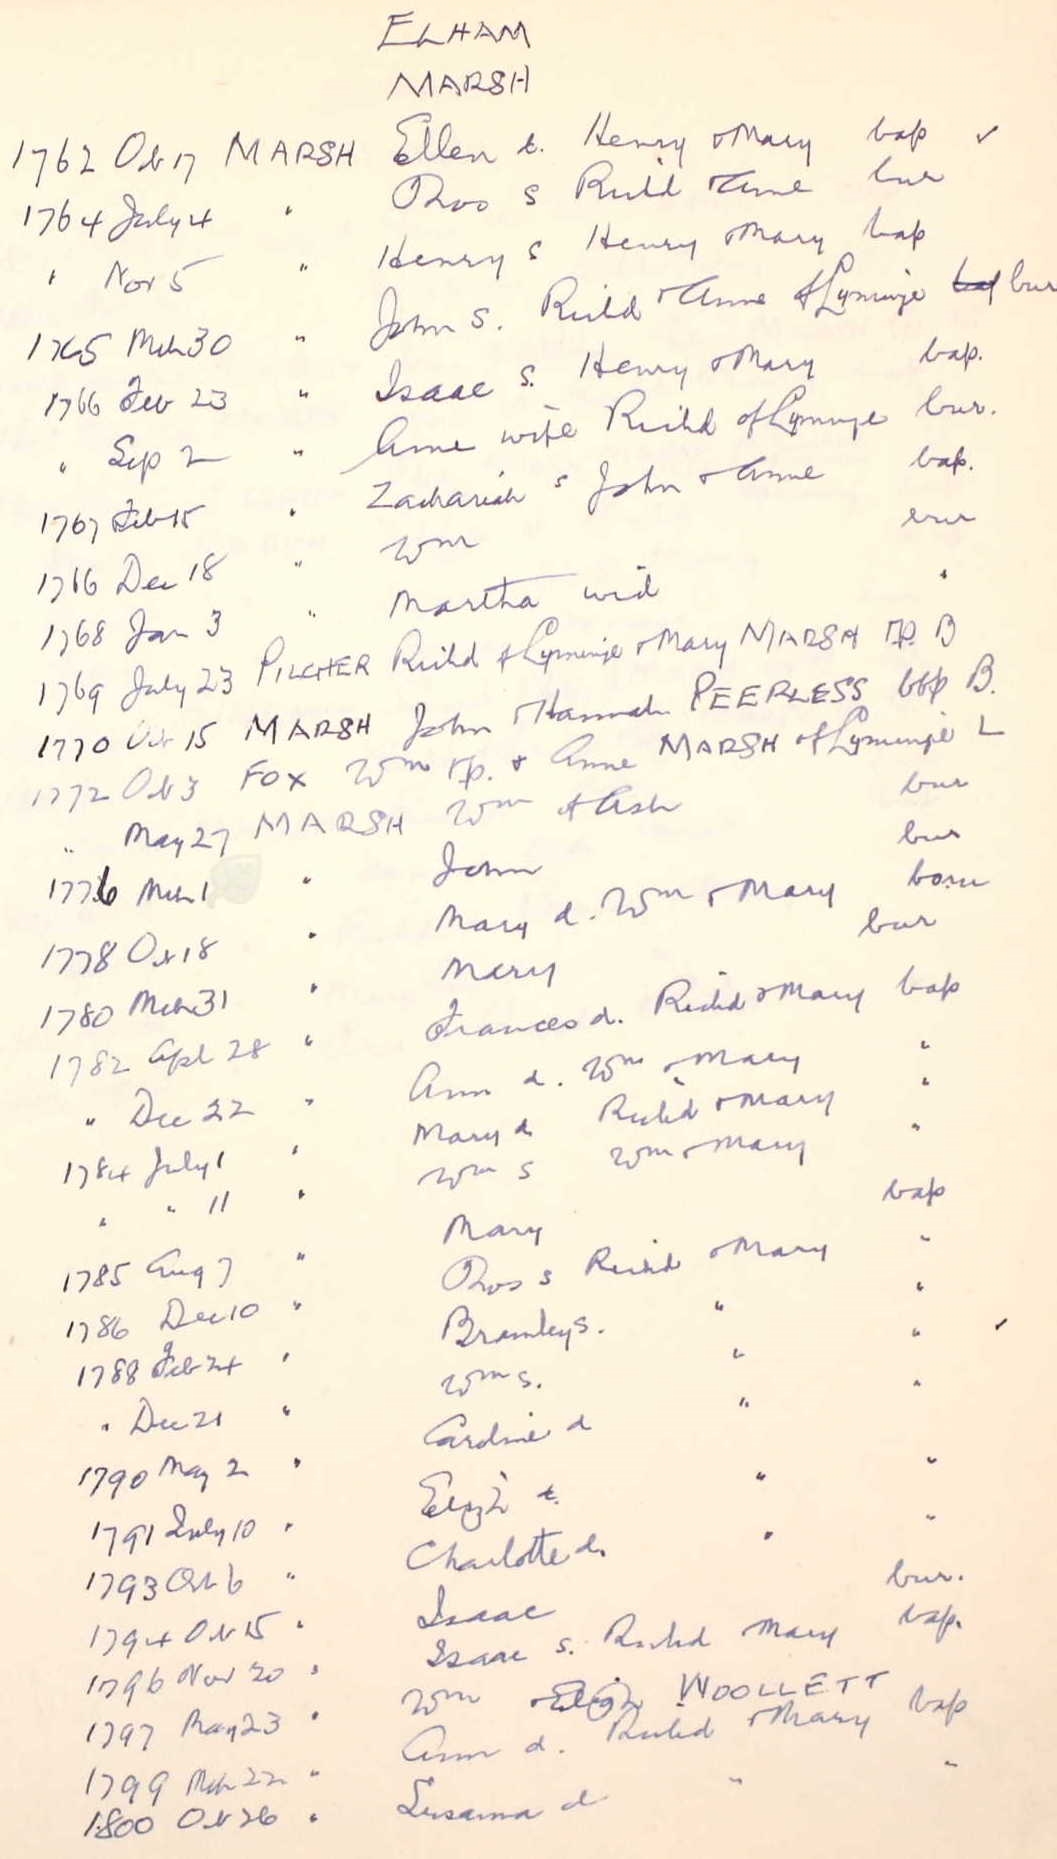 ELHAM
MARSH
1762 Oct 17 MARSH Ellen d. Henry & Mary bap ✓
1764 July 4 " Thos s Richd & Anne bur
" Nov 5 " Henry s Henry & Mary bap
1765 Mch 30 " John s. Richd & Anne of Lyminge bap bur
1766 Feb 23 " Isaac s. Henry & Mary bap.
" Sep 2 " Anne wife Richd of Lyminge bur.
1767 Feb 15 " Zachariah s John & Anne bap.
1766 Dec 18 " Wm bur
1768 Jan 3 " Martha wid "
1769 July 23 PILCHER Richd of Lyminge & Mary MARSH B
1770 Oct 15 MARSH John & Hannah PEERLESS B.
1772 Oct 3 FOX Wm & Anne MARSH of Lyminge L
" May 27 MARSH Wm of Ash bur
1776 Mch 1 " John bur
1778 Oct 18 " Mary d. Wm & Mary born
1780 Mch 31 " Mary bur
1782 Apl 28 " Frances d. Richd & Mary bap
" Dec 22 " Ann d. Wm & Mary "
1784 July 1 " Mary d. Richd & Mary "
" " 11 " Wm s Wm & Mary "
1785 Aug 7 " Mary bap
1786 Dec 10 " Thos s Richd & Mary "
1788 Feb 24 " Bramley s. " "
" Dec 21 " Wm s. " " ✓
1790 May 2 " Caroline d " "
1791 July 10 " Elizth d. " "
1793 Oct 6 " Charlotte d. " "
1794 Oct 15 " Isaac bur.
1796 Nov 20 " Isaac s. Richd Mary bap.
1797 May 23 " Wm & Elizth WOOLLETT
1799 Mch 22 " Ann d. Richd & Mary bap
1800 Oct 26 " Susanna d " "